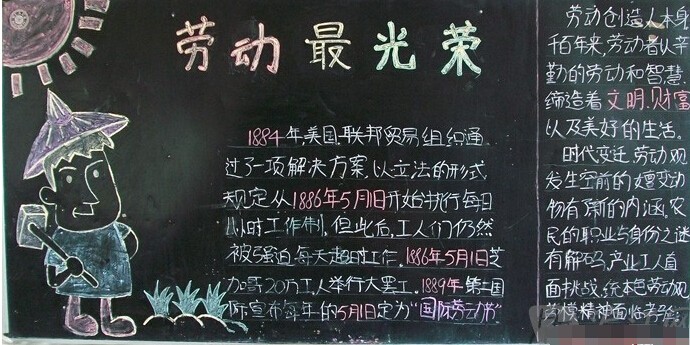 劳动最光荣
1884年,美国联邦贸易组织通
过了一项解决方案,以立法的形式
规定从1886年5月1日开始执行每日
八小时工作制,但此后,工人们仍然
被强迫每天超时工作,1886年5月1日芝
加哥20万工人举行大罢工,1889年第二国
际宣布每年的5月1日定为"国际劳动节"
劳动创造人本身
千百年来,劳动者以辛
勤的劳动和智慧,
缔造着文明、财富
以及美好的生活。
时代变迁,劳动观
发生空前的嬗变动
物有了新的内涵,农
民的职业与身份之谜
有解码,产业工人直
面挑战,传统劳动观
劳模精神面临考验;